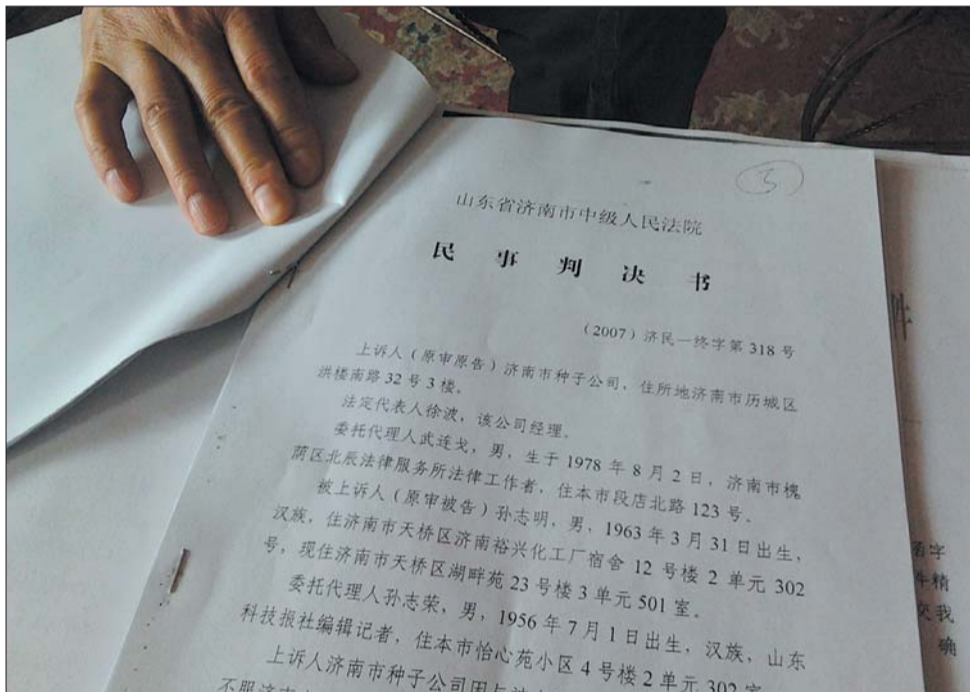 5
山东省济南市中级人民法院
民事判决书
(2007)济民一终字第318号
上诉人(原审原告)济南市种子公司,住所地济南市历城区
洪楼南路32号3楼。
法定代表人徐波,该公司经理。
委托代理人武连戈,男,生于1978年8月2日,济南市槐
荫区北辰法律服务所法律工作者,住本市段店北路123号。
被上诉人(原审被告)孙志明,男,1963年3月31日出生,
汉族,住济南市天桥区济南裕兴化工厂宿舍12号楼2单元302
号,现住济南市天桥区湖畔苑23号楼3单元501室。
委托代理人孙志荣,男,1956年7月1日出生,汉族,山东
科技报社编辑记者,住本市怡心苑小区4号楼2单元302室。
上诉人济南市种子公司因与
不服济南
件
函字
件精
交我
确